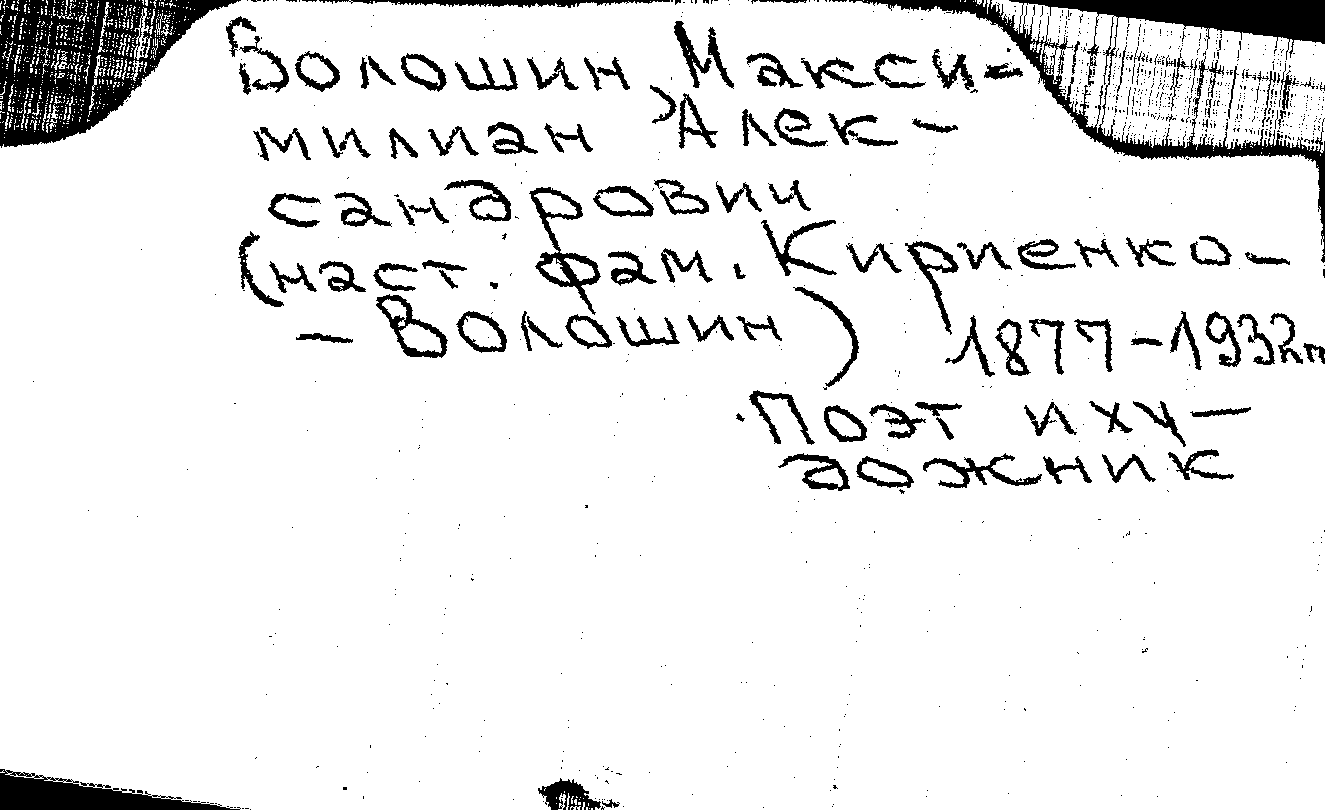 Волошин, Макси-
милиан Алек-
сандрович
(наст. фам. Кириенко-
- Волошин) 1877-1932гг
Поэт и ху-
дожник